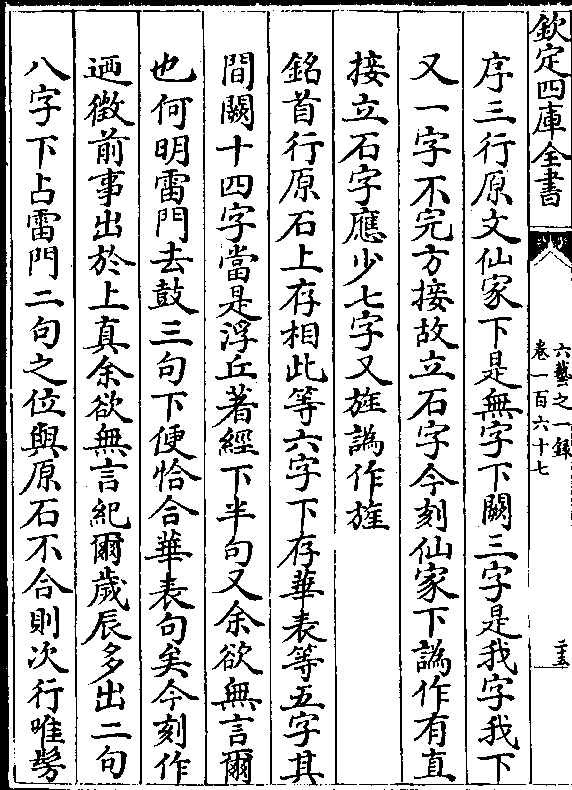 欽定四庫全書
六藝之一錄
卷一百六十七
二十五
序三行原文仙家下是無字下闕三字是我字我下
又一字不完方接故立石字今刻仙家下譌作有直
接立石字應少七字又旌譌作旌
銘首行原石上存相此等六字下存華表等五字其
間闕十四字當是浮丘著經下半句又余欲無言爾
也何明雷門去鼓三句下便恰合華表句矣今刻作
迺徵前事出於上真余欲無言紀爾歲辰多出二句
八字下占雷門二句之位與原石不合則次行唯髣